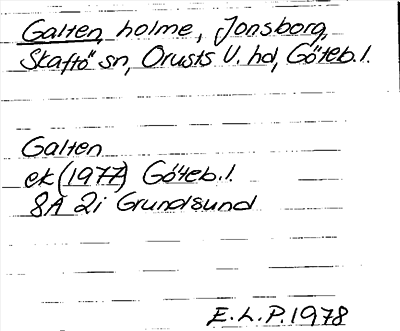 Galten, holme, Jonsborg,
Skaftö sn, Orusts V. hd, Göteb. l.
Galten
ek (1977) Göteb. l.
8A 2i Grundsund
E. L. P. 1978